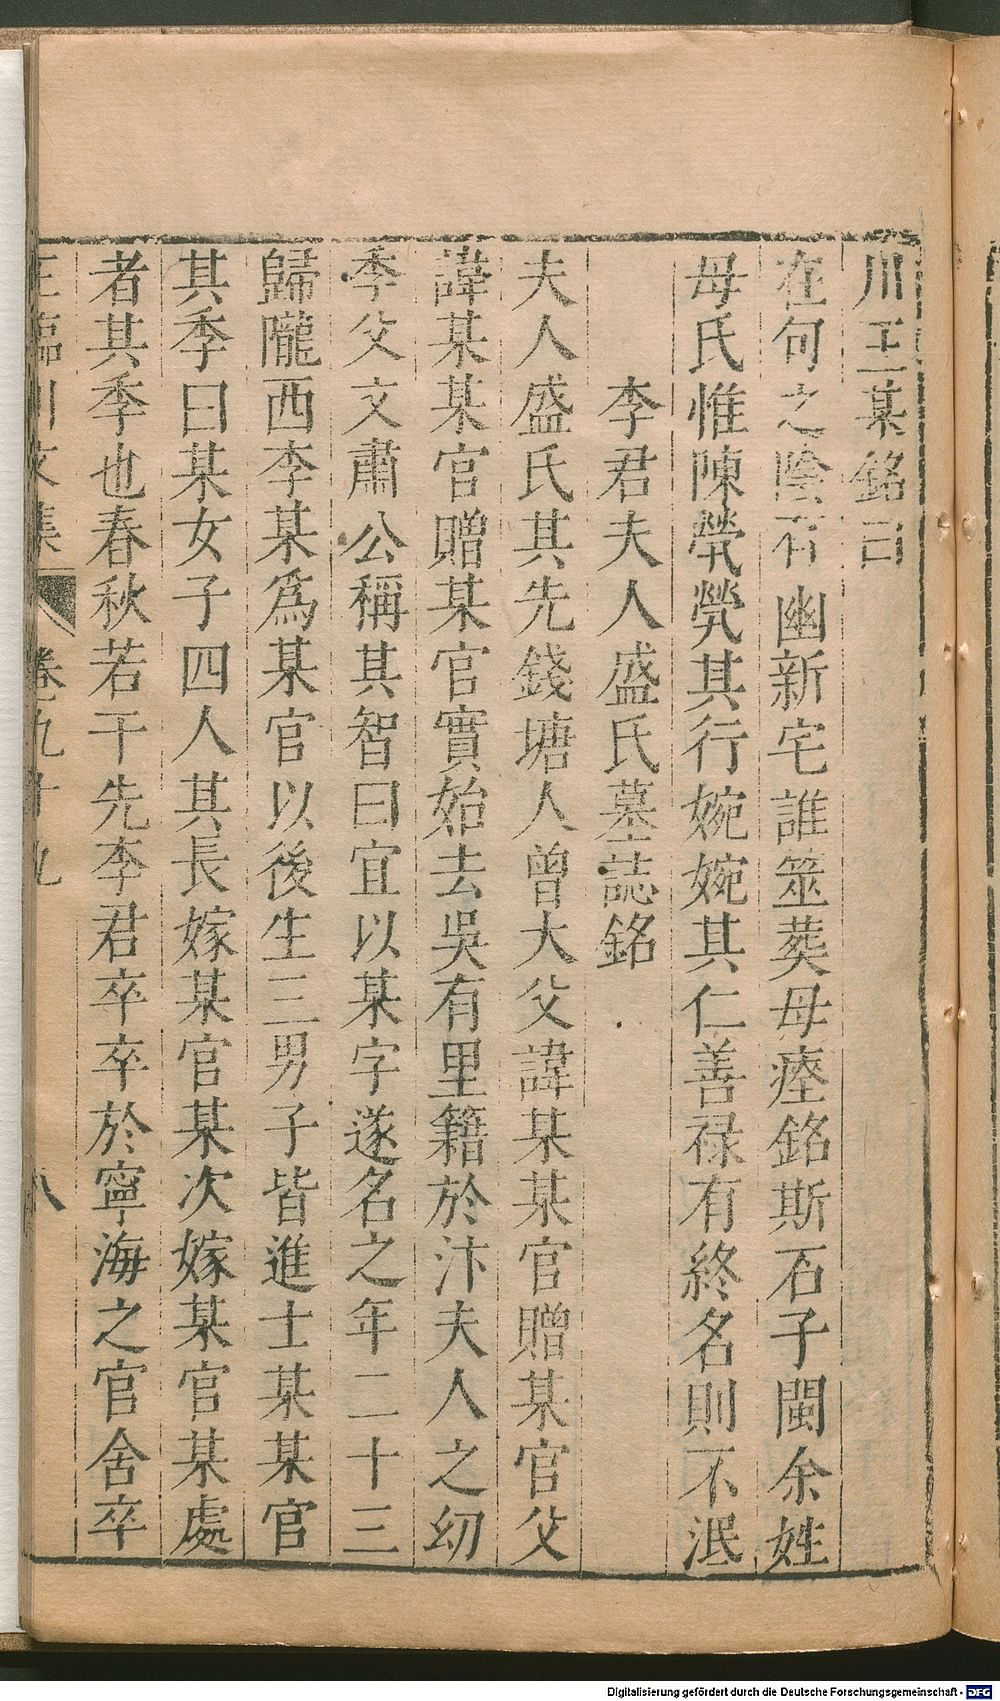 川王某銘曰
在句之陰有幽新宅誰筮葬母瘞銘斯石子閩余姓
母氏惟陳煢煢其行婉婉其仁善祿有終名則不泯
李君夫人盛氏墓誌銘
夫人盛氏其先錢塘人曾大父諱某某官贈某官父
諱某某官贈某官實始去吳有里籍於汴夫人之幼
季父文肅公稱其智曰宜以某字遂名之年二十三
歸隴西李某爲某官以後生三男子皆進士某某官
其季曰某女子四人其長嫁某官某次嫁某官某處
者其季也春秋若干先李君卒卒於寧海之官舍卒
王臨川文集 卷九十九 八
Digitalisierung gefördert durch die Deutsche Forschungsgemeinschaft - DFG